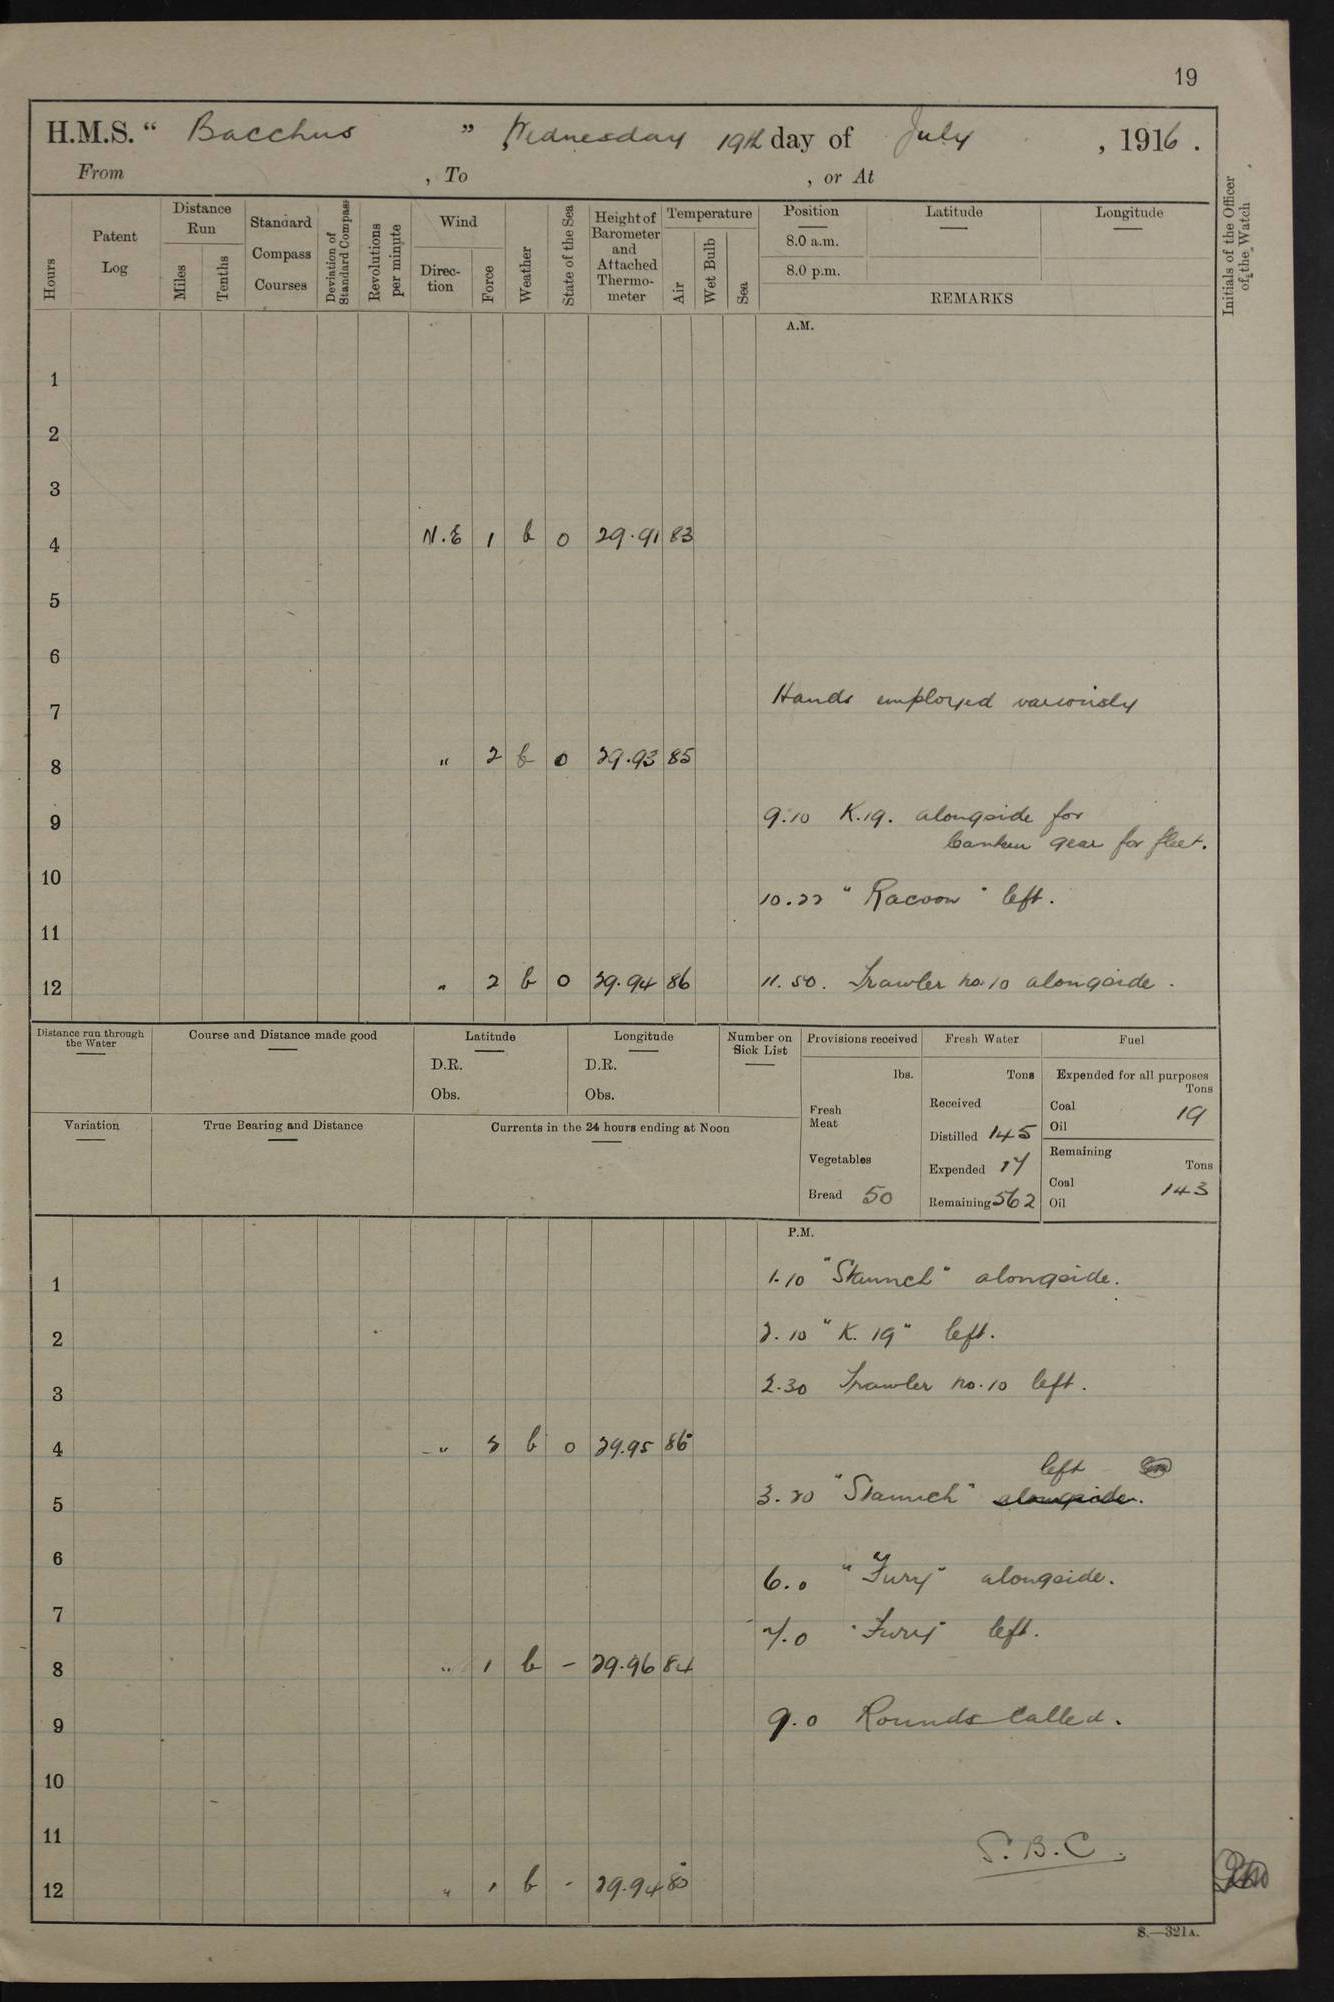 19
H.M.S. “ Bacchus ” Wednesday 19th day of July , 1916 .
From , To , or At
Hours
Patent Log
Distance Run
Miles
Tenths
Standard Compass Courses
Deviation of Standard Compass
Revolutions per minute
Wind
Direc-tion
Force
Weather
State of the Sea
Height of Barometer and Attached Thermo-meter
Temperature
Air
Wet Bulb
Sea
Position
8.0 a.m.
8.0 p.m.
Latitude
Longitude
REMARKS
Initials of the Officer of the Watch
A.M.
1
2
3
4 N.E 1 b 0 29.91 83
5
6
7 Hands employed variously
8 " 2 b 0 29.93 85
9 9.10 K.19. alongside for
gear for fleet.
10
10.22 " Racoon " left.
11
12 " 2 b 0 29.94 86 11.50. Trawler no.10 alongside.
Distance run through the Water
Course and Distance made good
Latitude
D.R.
Obs.
Longitude
D.R.
Obs.
Number on Sick List
Provisions received
lbs.
Fresh Meat
Vegetables
Bread 50
Fresh Water
Tons
Received
Distilled 145
Expended 17
Remaining 562
Fuel
Expended for all purposes
Tons
Coal 19
Oil
Remaining
Tons
Coal 143
Oil
Variation
True Bearing and Distance
Currents in the 24 hours ending at Noon
P.M.
1 1.10 "Staunch" alongside.
2 2.10 "K. 19" left.
3 2.30 Trawler no.10 left.
4 " 2 b 0 29.95 86
left
5 3.20 "Staunch" alongside.
6 6.0 "Fury" alongside.
7 7.0 "Fury" left.
8 " 1 b - 29.96 84
9 9.0 Rounds Called.
10
11 S.B.C.
12 " 1 b - 29.94 85
S.—321A.